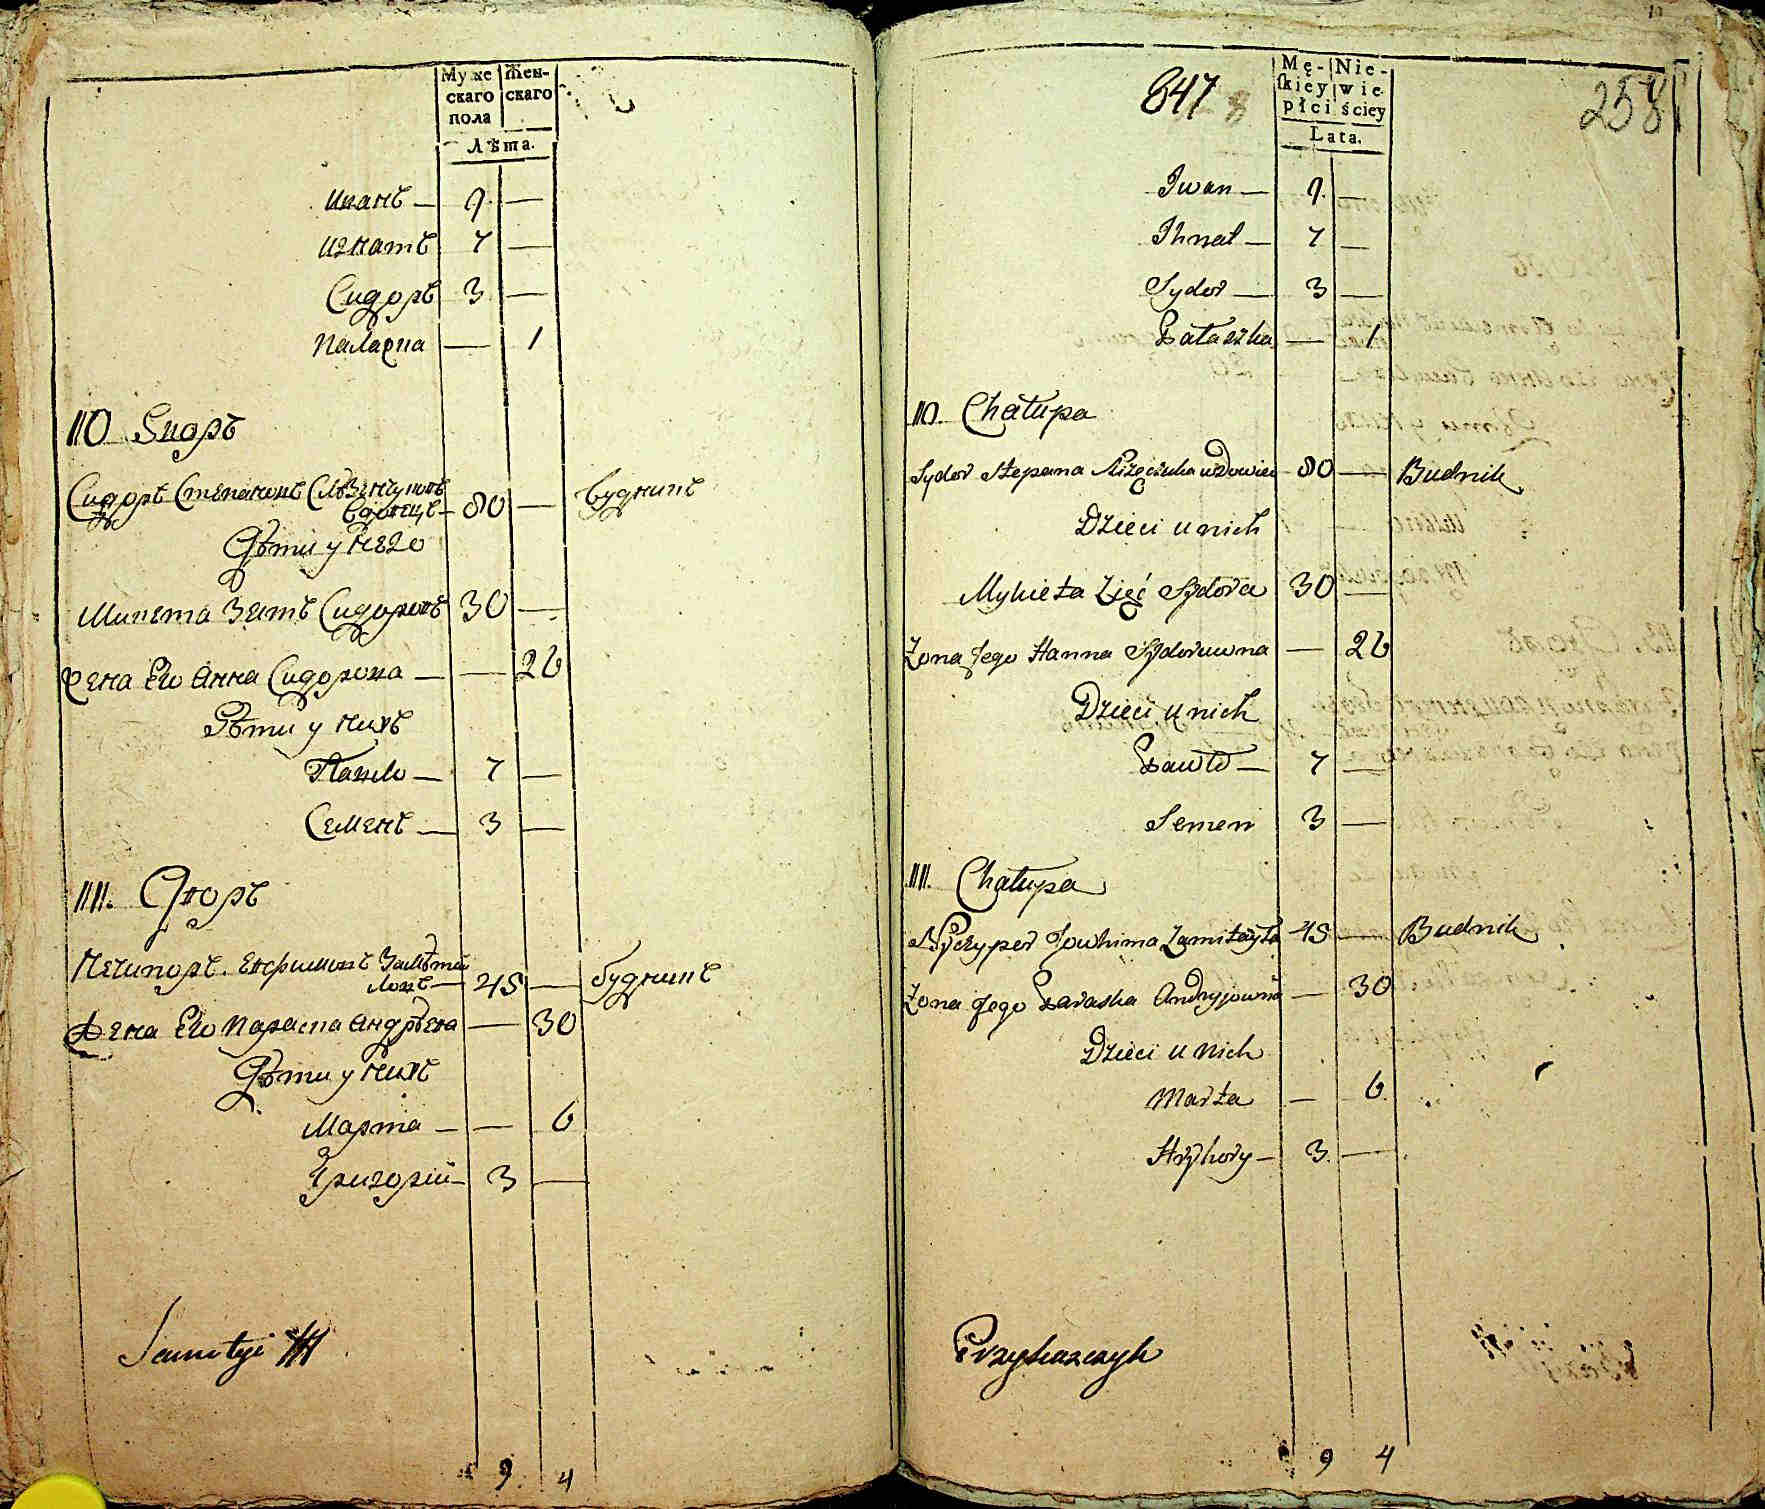 Муже Жен-
скаго скаго
пола
Лѣта.
Иванъ — 9 —
Игнатъ 7 —
Сидоръ 3 —
Палажка — 1
110 Дворъ
Сидоръ Степановъ
вдовецъ — 80 — будникъ
Дѣти у него
Микита Зять Сидоровъ 30 —
Жена Его Анна Сидорова — — 26
Дѣти у нихъ
Павло — 7 —
Семенъ — 3 —
111. Дворъ
Нечипоръ Евфимовъ Замѣтай
ловъ — 45 — будникъ
Жена Его Параска Андрѣева — 30
Дѣти у нихъ
Марта — — 6
Григорій — 3 —
9 4
847
258
Mę- Nie-
skiey wie-
płci ściey
Lata.
Iwan — 9 —
Ihnat — 7 —
Sydor — 3 —
Pałaszka — 1
110. Chałupa
Sydor Stepana wdowiec — 80 — Budnik
Dzieci u nich
Mykieta Zięć Sydora 30 —
Żona Jego Hanna Sydoruwna — 26
Dzieci u nich
Pawło — 7 —
Semen 3 —
111. Chałupa
Nyczypor Jowhima Zamitayła 45 — Budnik
Żona Jego Paraska Andryjowna — 30
Dzieci u nich
Marta — 6
Hryhory — 3 —
Przykaszczyk
9 4